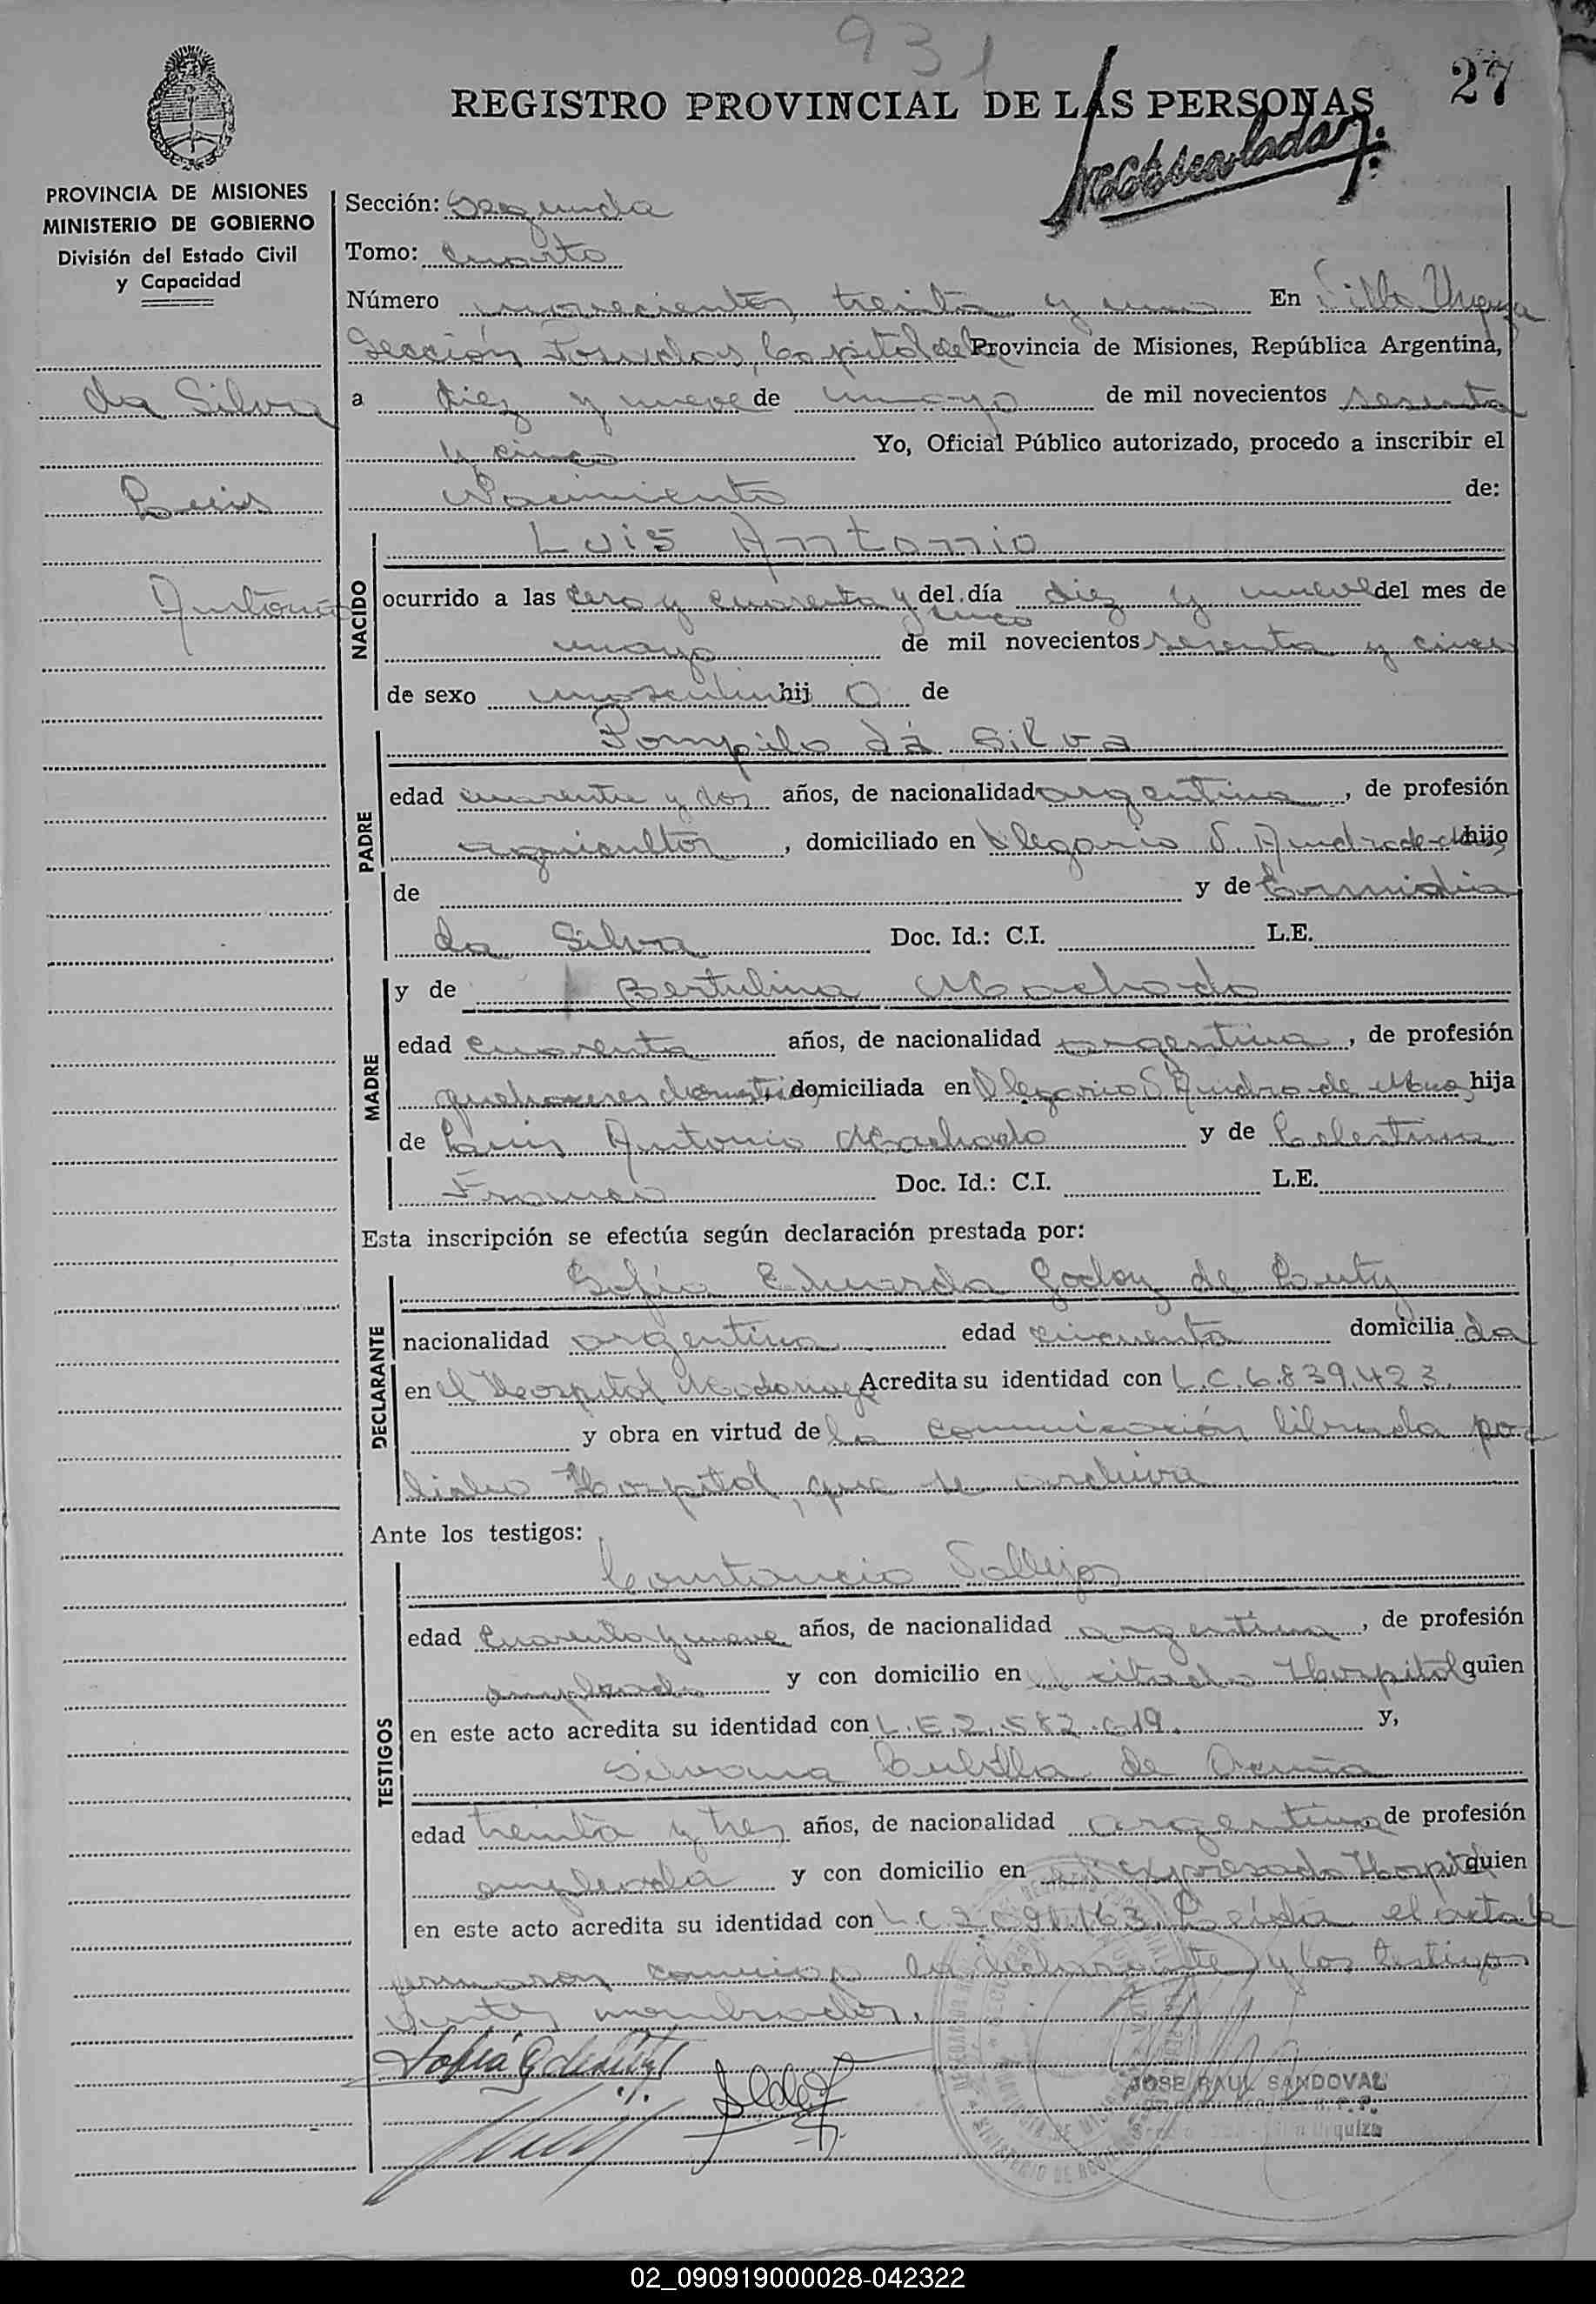 931
27
REGISTRO PROVINCIAL DE LAS PERSONAS
PROVINCIA DE MISIONES
MINISTERIO DE GOBIERNO
División del Estado Civil
y Capacidad
da Silva
Luis
Antonio
Sección: Segunda
Tomo: Cuarto
Número novecientos treinta y uno En Villa Urquiza
Sección Posadas, Capital de la Provincia de Misiones, República Argentina,
a diez y nueve de mayo de mil novecientos sesenta
y cinco Yo, Oficial Público autorizado, procedo a inscribir el
Nacimiento de:
NACIDO
Luis Antonio
ocurrido a las cero y cuarenta y cinco del día diez y nueve del mes de
mayo de mil novecientos sesenta y cinco
de sexo masculino hij o de
PADRE
Pompilo da Silva
edad cuarenta y dos años, de nacionalidad argentina, de profesión
agricultor, domiciliado en Olegario V. Andrade hijo
de y de
da Silva Doc. Id.: C.I. L.E.
MADRE
y de Bertulina Machado
edad cuarenta años, de nacionalidad argentina, de profesión
quehaceres domesticos, domiciliada en Olegario V. Andrade hija
de Luis Antonio Machado y de Celestina
Franco Doc. Id.: C.I. L.E.
Esta inscripción se efectúa según declaración prestada por:
DECLARANTE
Sofía Eduarda Godoy de
nacionalidad argentina edad cincuenta domicilia da
en el Hospital Madariaga Acredita su identidad con L.C.6.839.423.
y obra en virtud de la comunicación librada por
dicho Hospital, que se archiva
Ante los testigos:
TESTIGOS
Constancio Vallejos
edad cuarenta y nueve años, de nacionalidad argentina, de profesión
empleado y con domicilio en el citado Hospital quien
en este acto acredita su identidad con L.E.2.582.619. y,
Silvana Cubilla de Acuña
edad treinta y tres años, de nacionalidad argentina de profesión
empleada y con domicilio en el expresado Hospital quien
en este acto acredita su identidad con L.C. Leída el acta la
firmaron conmigo la declarante y los testigos
antes nombrados.
JOSE RAUL SANDOVAL
02_090919000028-042322